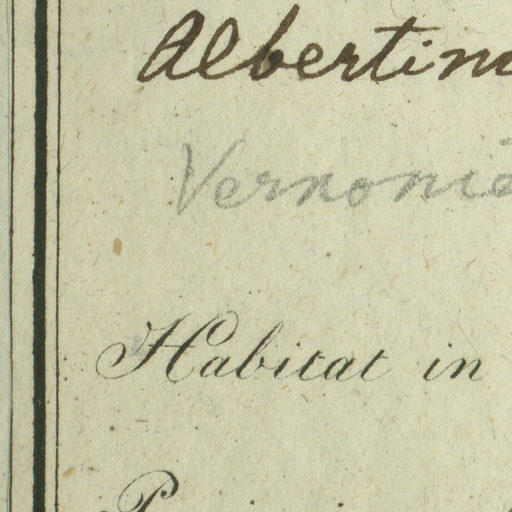 Albertin
Vernonie
Habitat in